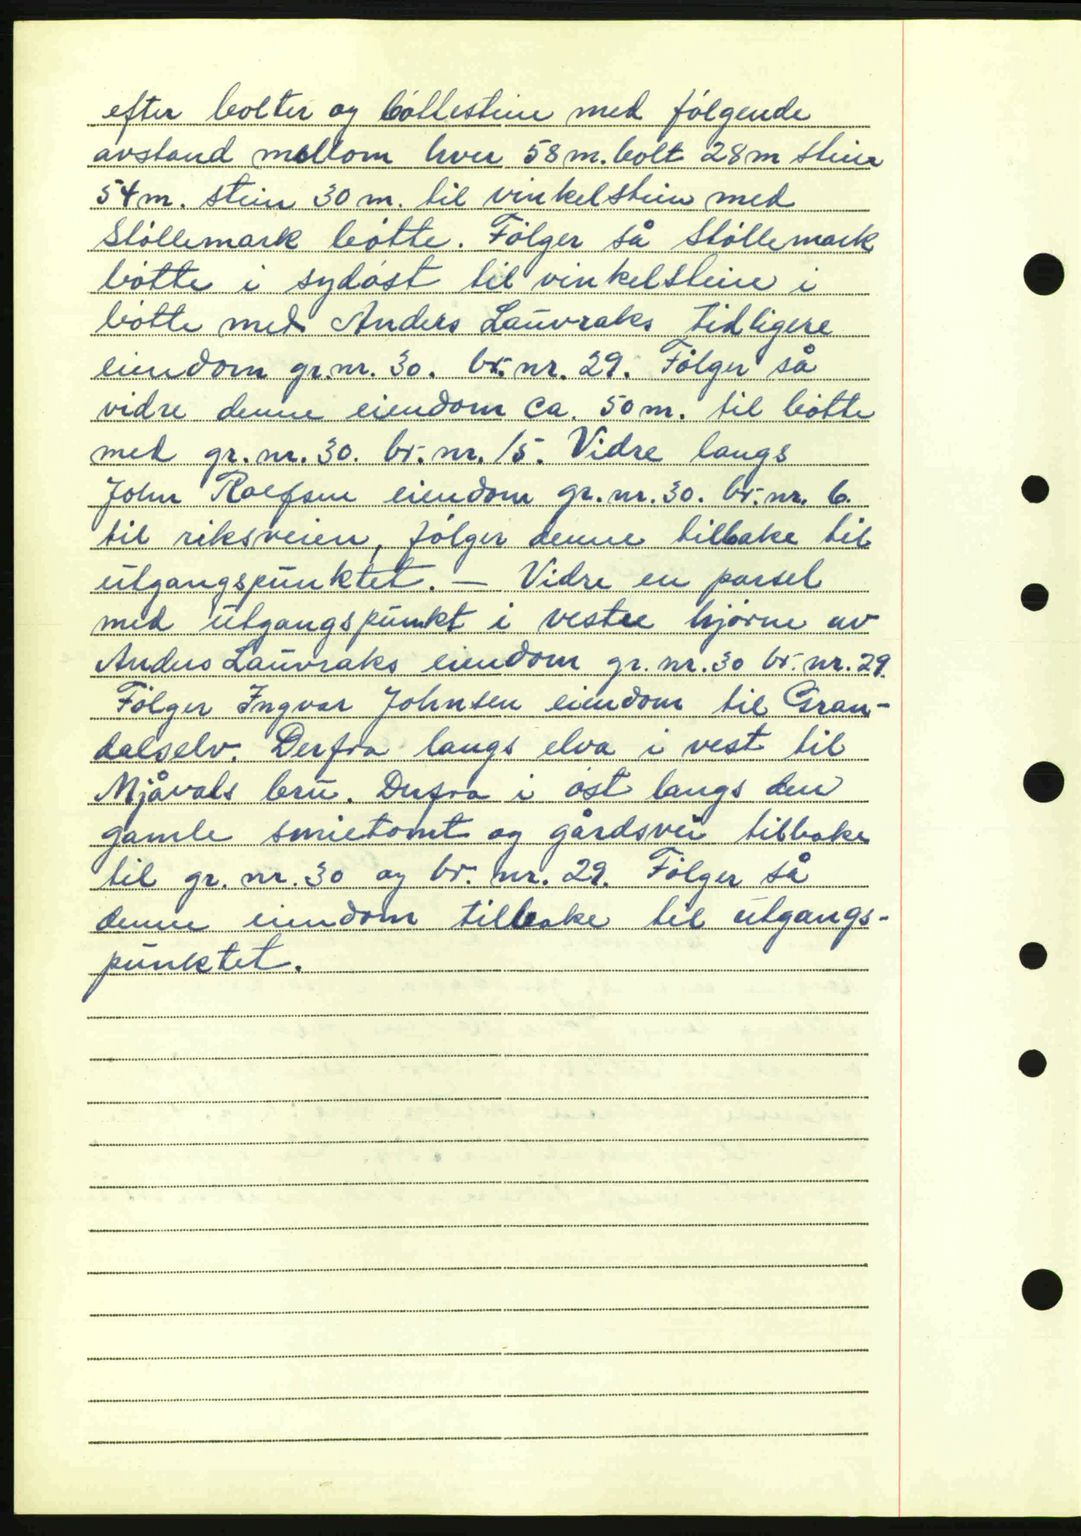 efter bolter og böllestein med følgende
avstand mellom hver 58 m. bolt 28 m stein
54 m. stein 30 m. til vinkelstein med
Støllemark bötte. Fölger så Støllemark
bötte i sydöst til vinkelstein i
bötte med Anders Lauvraks tidligere
eiendom gr.nr. 30. br.nr. 29. Fölger så
vidre denne eiendom ca. 50 m. til bötte
med gr.nr. 30. br.nr. 15. Vidre langs
John Roefsen eiendom gr.nr. 30. br.nr. 6.
til riksveien, fölger denne tilbake til
utgangspunktet. — Vidre en parsel
med utgangspunkt i vestre hjörne av
Anders Lauvraks eiendom gr.nr. 30 br.nr. 29.
Fölger Ingvar Johnsen eiendom til Gran-
dalselv. Derfra langs elva i vest til
Mjåvals bru. Derfra i öst langs den
gamle smietomt og gårdsvei tilbake
til gr. nr. 30 og br. nr. 29. Fölger så
denne eiendom tilbake til utgangs-
punktet.